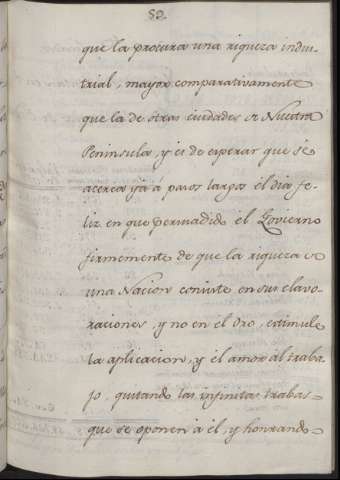 52.
que la procura una riqueza indus-
trial, mayor comparativamente
que la de otras ciudades de Nuestra
Peninsula, y es de esperar que se
acerca yá á pasos largos el dia fe-
liz en que persuadido el Govierno
firmemente de que la riqueza de
una Nacion consiste en sus elavo-
raciones, y no en el Oro, estimule
la aplicacion, y el amor al traba-
jo, quitando las infinitas trabas
que se oponen a él, y honrando